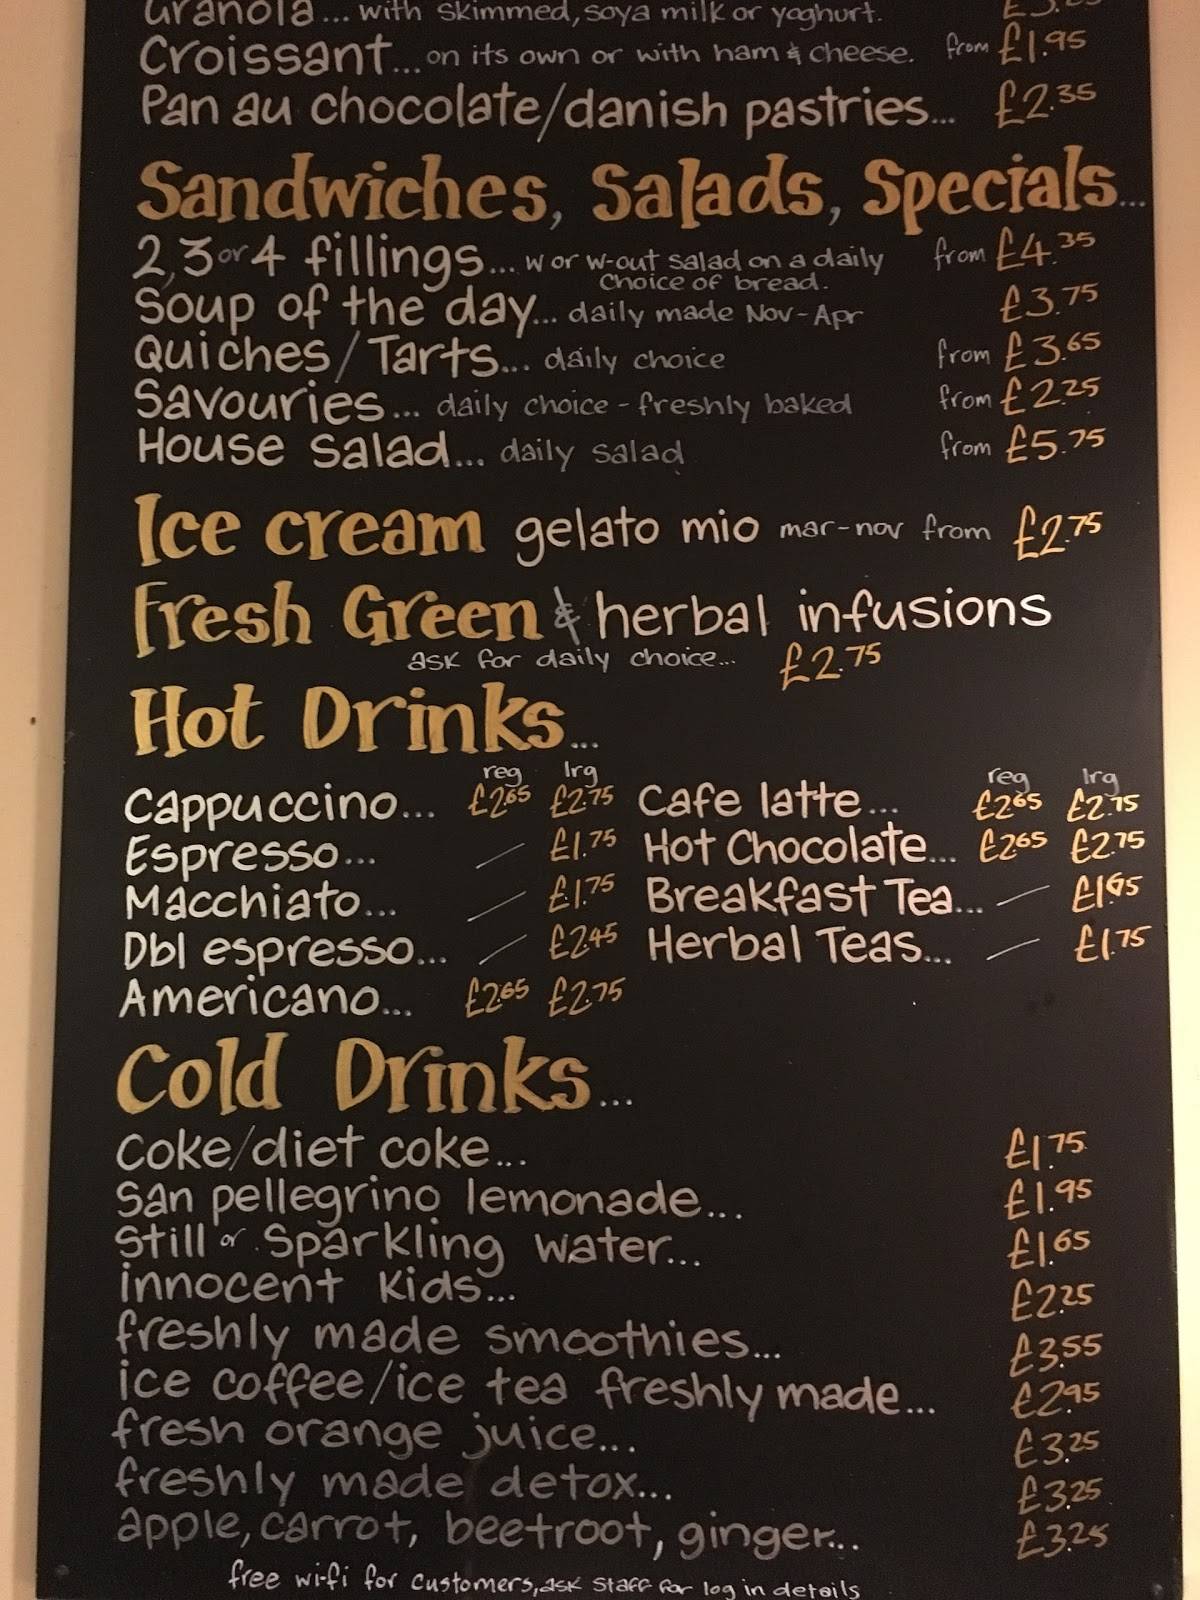 Granola... with skimmed, soya milk or yoghurt.
Croissant... on its own or with ham & cheese. from £1.95
Pan au chocolate/danish pastries... £2.35
Sandwiches, Salads, Specials...
2,3 or 4 fillings... w or w-out salad on a daily from £4.35
choice of bread.
Soup of the day... daily made Nov-Apr £3.75
Quiches/Tarts... daily choice from £3.65
Savouries... daily choice - freshly baked from £2.25
House Salad... daily salad from £5.75
Ice cream gelato mio mar-nov from £2.75
Fresh Green & herbal infusions
ask for daily choice... £2.75
Hot Drinks...
reg lrg reg lrg
Cappuccino... £2.65 £2.75 Cafe latte... £2.65 £2.75
Espresso... £1.75 Hot Chocolate... £2.65 £2.75
Macchiato... £1.75 Breakfast Tea...
Dbl espresso... £2.45 Herbal Teas... £1.75
Americano... £2.65 £2.75
Cold Drinks...
coke/diet coke... £1.75
San pellegrino lemonade... £1.95
Still or Sparkling water... £1.65
innocent kids... £2.25
freshly made smoothies... £3.55
ice coffee/ice tea freshly made... £2.95
fresh orange juice... £3.25
freshly made detox... £3.25
apple, carrot, beetroot, ginger... £3.25
free wi-fi for customers, ask staff for log in details